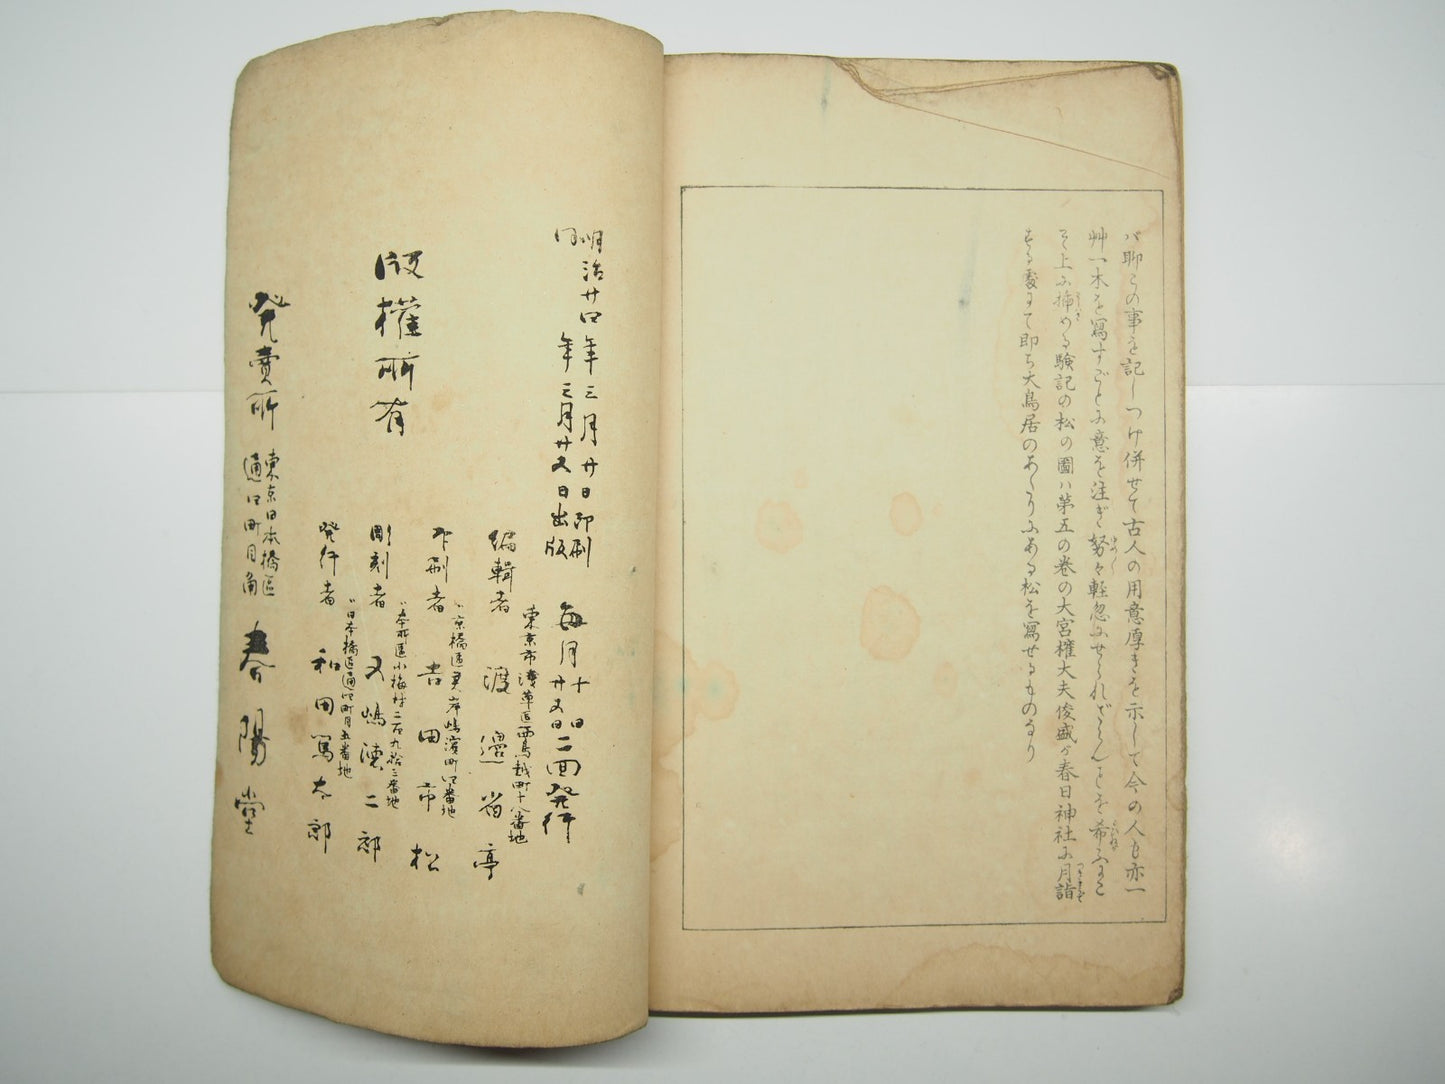 バ聊この事を記しつけ併せて古人の用意厚きを示して今の人も亦一
艸一木を寫すごとに意を注ぎ努々軽忽にせられざらんことを希ふまこ
そ上に挿める験記の松の圖ハ第五の巻の大宮権大夫俊盛が春日神社に月詣
する處にて即ち大鳥居のあたりにある松を寫せるものなり
明治廿四年三月廿日印刷
同年三月廿五日出版
毎月十日廿五日二回発行
版權所有
編輯者 渡邉省亭
東京市淺草區西鳥越町十八番地
印刷者 吉田市松
〃京橋區霊岸嶋濱町四番地
彫刻者 又嶋徳二郎
〃本所區小梅村二百九拾三番地
発行者 和田篤太郎
〃日本橋區通四町目五番地
発賣所
東京日本橋區
通四町目角
春陽堂